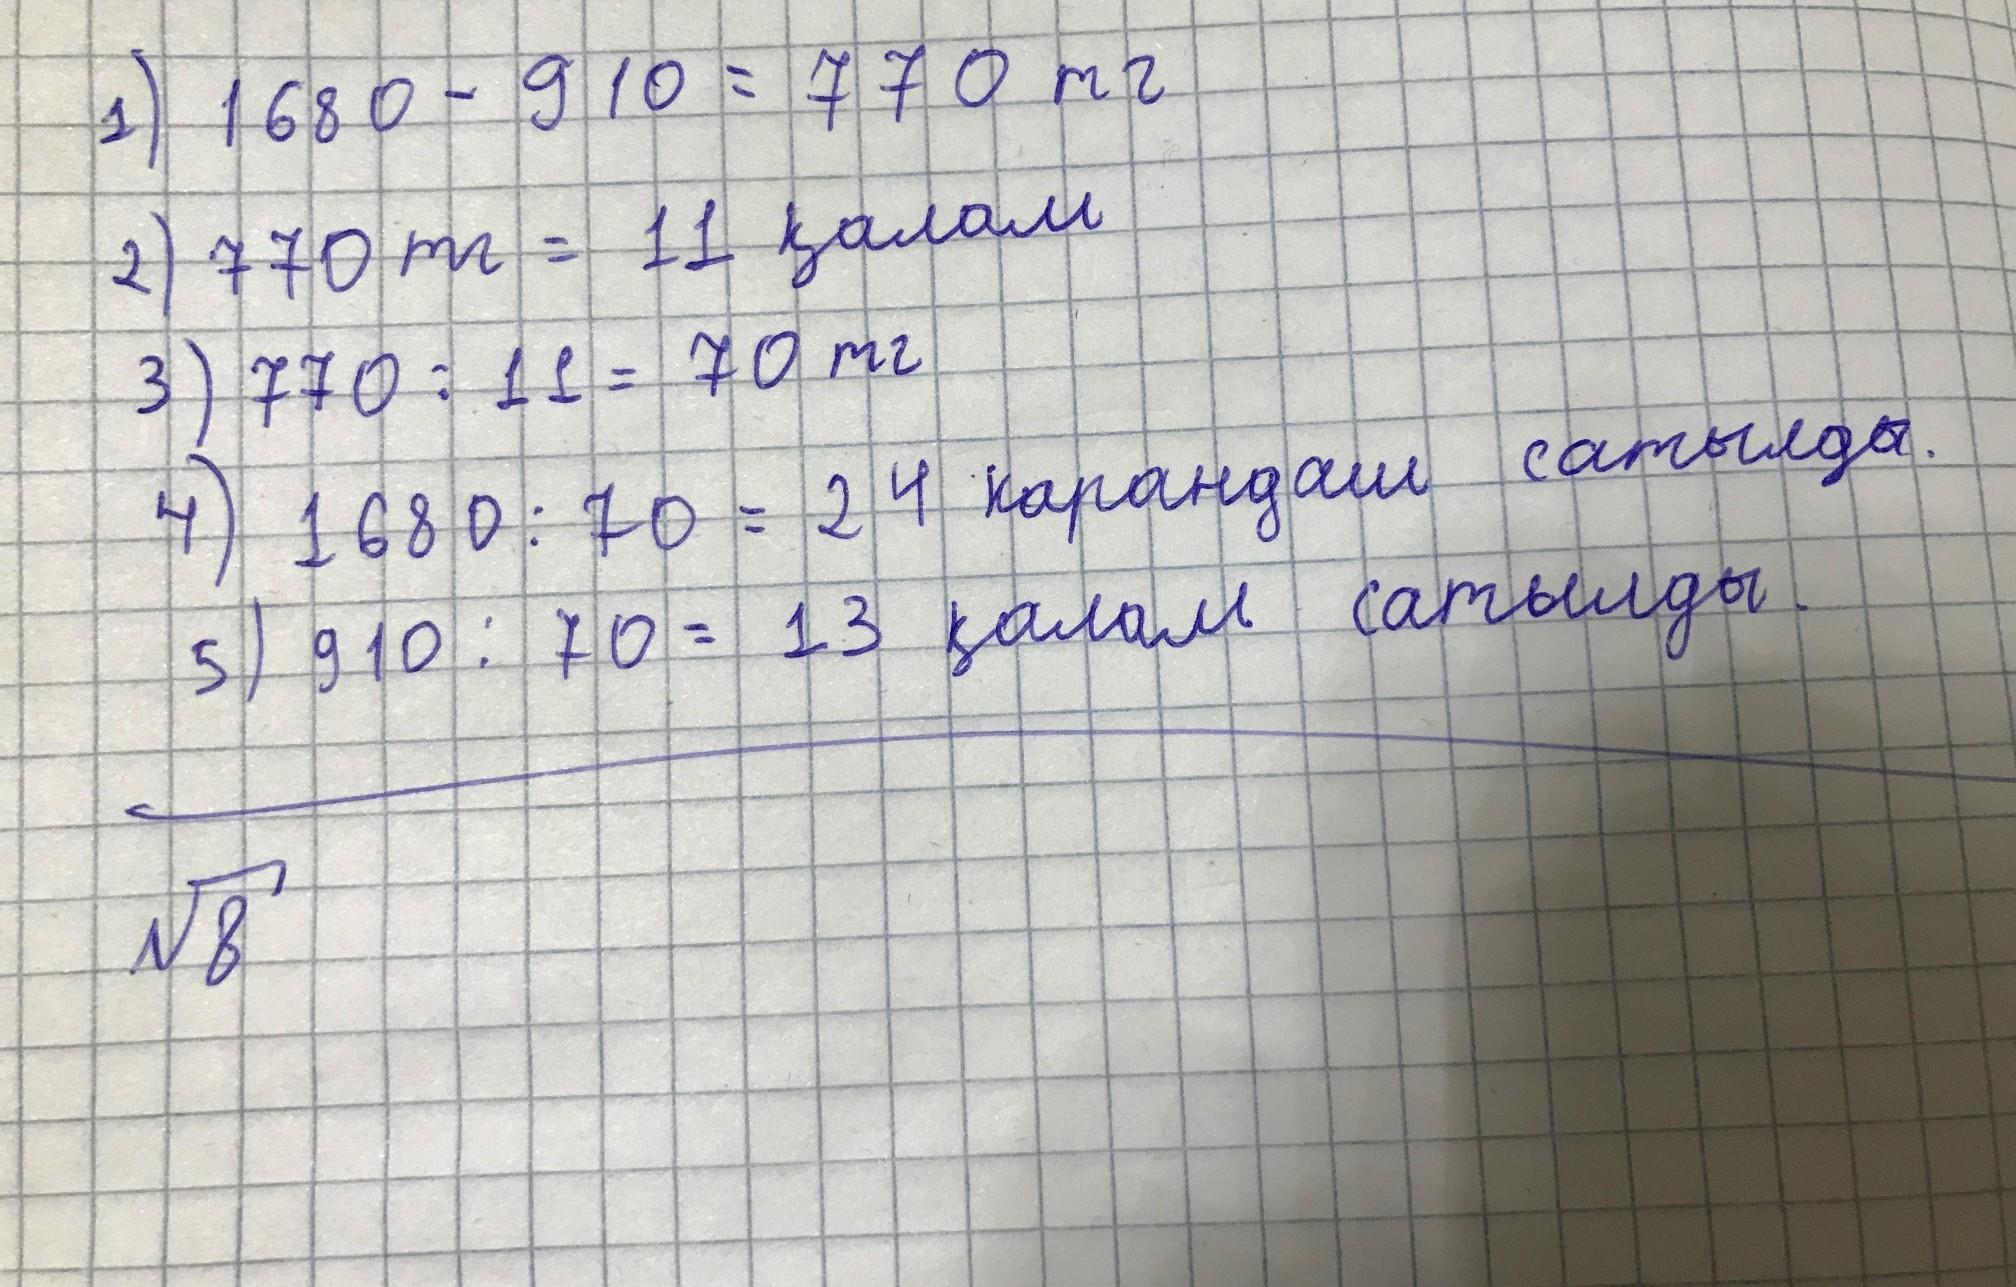 1) 1680 - 910 = 770 тг
2) 770 тг = 11 қалам
3) 770 : 11 = 70 тг
4) 1680 : 70 = 24 карандаш сатылды.
5) 910 : 70 = 13 қалам сатылды.
√8